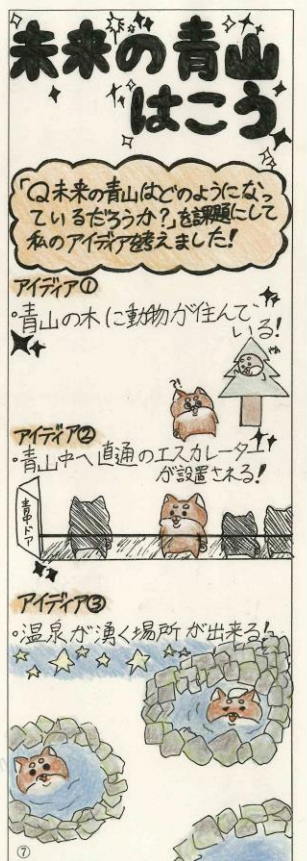 未来の青山
はこう
「Q未来の青山はどのようになっ
ているだろうか?」を課題にして
私のアイディアを考えました!
アイディア①
・青山の木に動物が住んで
いる!
アイディア②
・青山中へ直通のエスカレーター
が設置される!
青中ドア
アイディア③
・温泉が湧く場所が出来る!
⑦